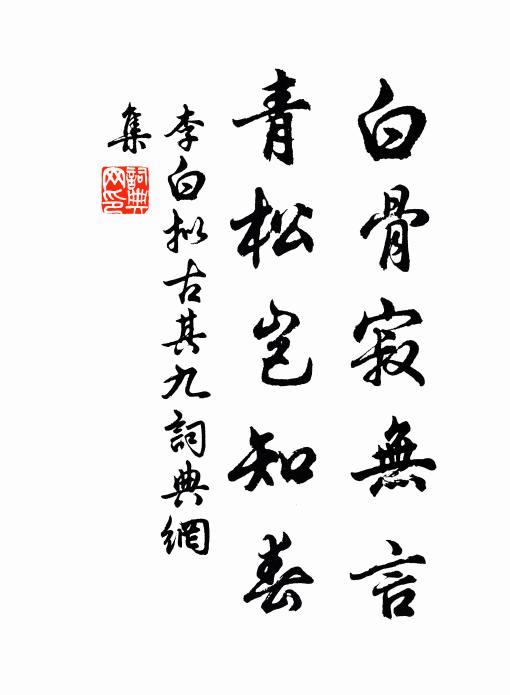 白骨寂無言
青松豈知春
李白拟古其九詞典網
集
詞典
网印